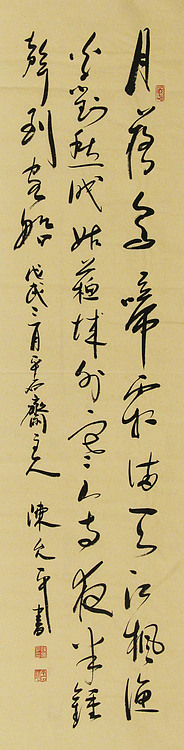 月落烏啼霜滿天江楓漁
火對愁眠姑蘇城外寒山寺夜半鐘
聲到客船 戊戌二月平石齋主人 陳允平書